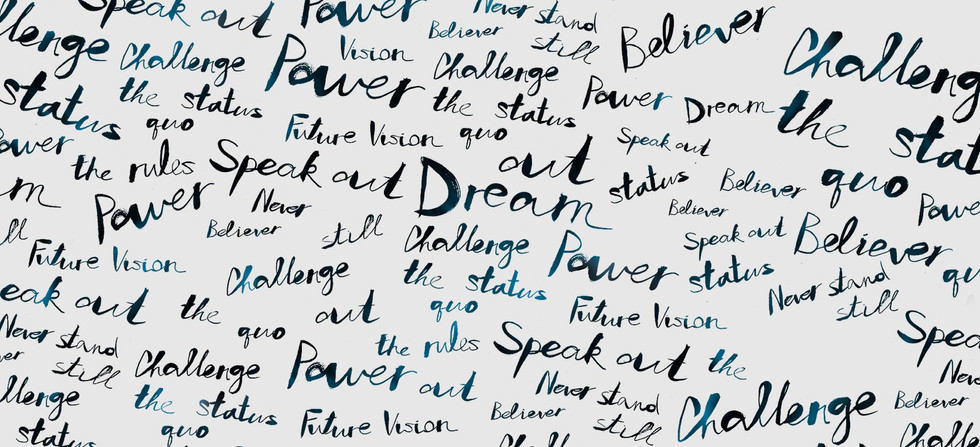 Speak out Power Never stand still
Believer
Believer
Challenge
Vision
Challenge Power Challenge
status the status the status Power Dream the
quo Future Vision quo Speak out
the rules Speak out Dream out status Believer quo
Power Never Believer
Believer still Challenge Speak out Believer
Future Vision Power status
Challenge the status Never stand
still
out the quo out quo Future Vision
Never stand the rules Speak out the
still Challenge Power out Never stand
the status Believer still Challenge Believer
status quo Future Vision